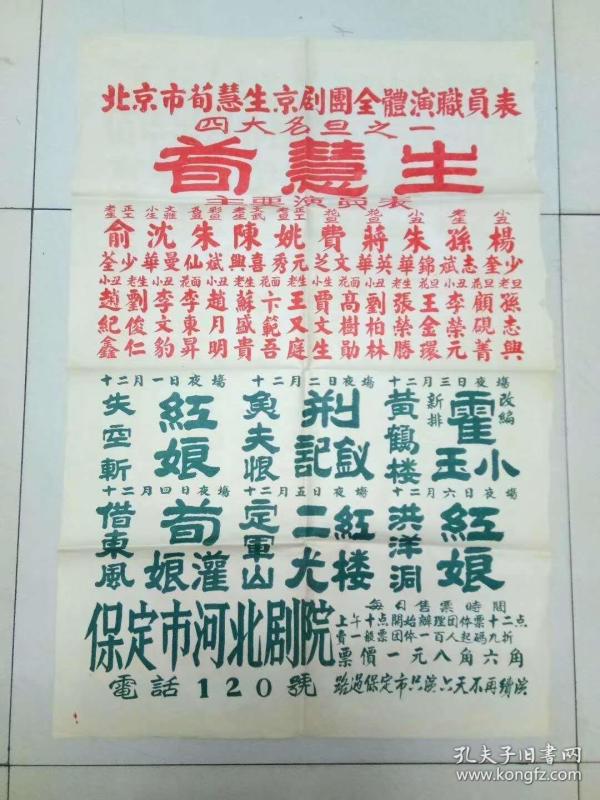 北京市荀慧生京剧團全體演職員表
四大名旦之一
荀慧生
主要演員表
楊少奎
孫志斌
朱錦華
蔣英華
費文芝
姚元秀
陳喜興
朱斌仙
沈曼華
俞少荃
老旦 孫志興
花旦 顧硯菁
小丑 李榮元
花旦 王金環
老生 張榮勝
小丑 劉柏林
花面 高樹勛
小生 賈文生
老生 王又庭
花面 卞範吾
老生 蘇盛貴
小丑 趙月明
花面 李東昇
老生 李文豹
老生 劉俊仁
小丑 趙紀鑫
十二月一日夜場
紅娘
失空斬
十二月二日夜場
荆釵記
魚夫恨
十二月三日夜場
改編
新排
霍小玉
黃鶴楼
十二月四日夜場
荀灌娘
借東風
十二月五日夜場
紅楼二尤
定軍山
十二月六日夜場
紅娘
洪洋洞
保定市河北剧院
電話120號
每日售票時間
上午十点開始辦理团体票十二点
賣一般票团体一百人起碼九折
票價一元八角六角
路过保定市只演六天不再續演
孔夫子旧书网
www.kongfz.com